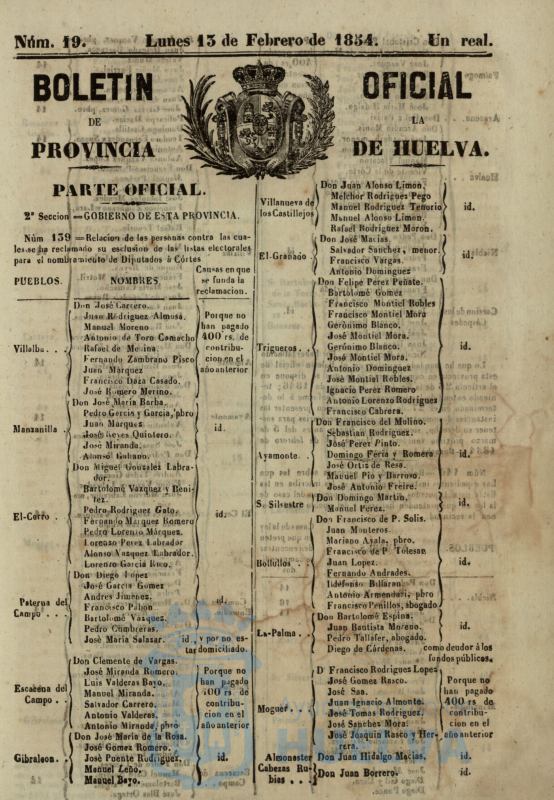 Núm. 19. Lunes 13 de Febrero de 1854. Un real.
BOLETIN OFICIAL
DE LA
PROVINCIA DE HUELVA.
PARTE OFICIAL.
2ª Seccion =GOBIERNO DE ESTA PROVINCIA.
Núm 139 =Relacion de las personas contra las cua-
les se ha reclamado su esclusion de las listas electorales
para el nombramiento de Diputados á Córtes
PUEBLOS. NOMBRES. Causas en que
se funda la
reclamacion.
Don José Carrero.
Juan Rodriguez Almusa.
Manuel Moreno
Antonio de Toro Camacho
Villalba . . Rafael de Medina.
Fernando Zambrano Pisco
Juan Marquez
Francisco Daza Casado.
José Romero Merino.
Porque no
han pagado
400 rs. de
contribu-
cion en el
año anterior
Don José Maria Barba.
Pedro Garcia y Garcia, pbro
Juan Marques
Manzanilla . José Reyes Quintero. id.
José Miranda.
Alonso Galiano.
Don Miguel Gonzalez Labra-
dor.
Bartolomé Vazquez y Beni-
tez.
Pedro Rodriguez Gato.
El-Cerro . . Fernando Márquez Romero id.
Pedro Lorenzo Márquez.
Lorenzo Perez Labrador
Alonso Vazquez Labrador.
Lorenzo Garcia Rico.
Don Diego Lopez
José Garcia Gomez
Andres Jimenez.
Paterna del Francisco Pabon id.
Campo . . . Bartolomé Vazquez.
Pedro Cumbreras.
José Maria Salazar. id , y por no es-
tar domiciliado.
Don Clemente de Vargas.
José Miranda Romero.
Luis Valderas Bayo.
Escacena del Manuel Miranda.
Campo . . Salvador Carrero.
Antonio Valderas.
Antonio Miranda, pbro
Porque no
han pagado
400 rs. de
contribu-
cion en el
año anterior
Don José Maria de la Rosa.
José Gomez Romero.
Gibraleon. . José Puente Rodriguez. id.
Manuel Leño.
Manuel Bayo.
Don Juan Alonso Limon.
Villanueva de Melchor Rodriguez Pego
los Castillejos Manuel Rodriguez Tenorio id.
Manuel Alonso Limon.
Rafael Rodriguez Moron.
Don José Macias.
El-Granado Salvador Sanchez, menor. id.
Francisco Vargas.
Antonio Dominguez
Don Felipe Perez Peñate.
Bartolomé Gomez
Francisco Montiel Robles
Francisco Montiel Mora
Gerónimo Blanco.
José Montiel Mora.
Trigueros. . Gerónimo Blanco. id.
José Montiel Mora.
Antonio Dominguez
José Montiel Robles.
Ignacio Perez Romero
Antonio Lorenzo Rodriguez
Francisco Cabrera.
Don Francisco del Molino.
Sebastian Rodriguez.
José Perez Pinto.
Ayamonte . Domingo Feria y Romero id.
José Ortiz de Resa.
Manuel Pio y Barroso.
José Antonio Freire.
S. Silvestre Don Domingo Martin. id.
Manuel Perez.
Don Francisco de P. Solis.
Juan Monteros.
Mariano Ayala, pbro.
Francisco de P. Tolesan
Bollullos . . Juan Lopez. id.
Fernando Andrades.
Ildefonso Billaran
Antonio Armendari, pbro
Francisco Penillos, abogado
Don Bartolomé Espina.
La-Palma . . Juan Bautista Moreno. id.
Pedro Tallafer, abogado.
Diego de Cárdenas. como deudor á los
fondos públicos.
D Francisco Rodriguez Lopez
José Gomez Rasco.
José Saa.
Moguer. . . Juan Ignacio Almonte.
José Tomas Rodriguez.
José Sanchez Mora
José Joaquin Rasco y Her-
rera.
Porque no
han pagado
400 rs de
contribu-
cion en el
año anterior
Almonaster Don Juan Hidalgo Macias. id.
Cabezas Ru-
bias . . . Don Juan Borrero. id.
HUELVA